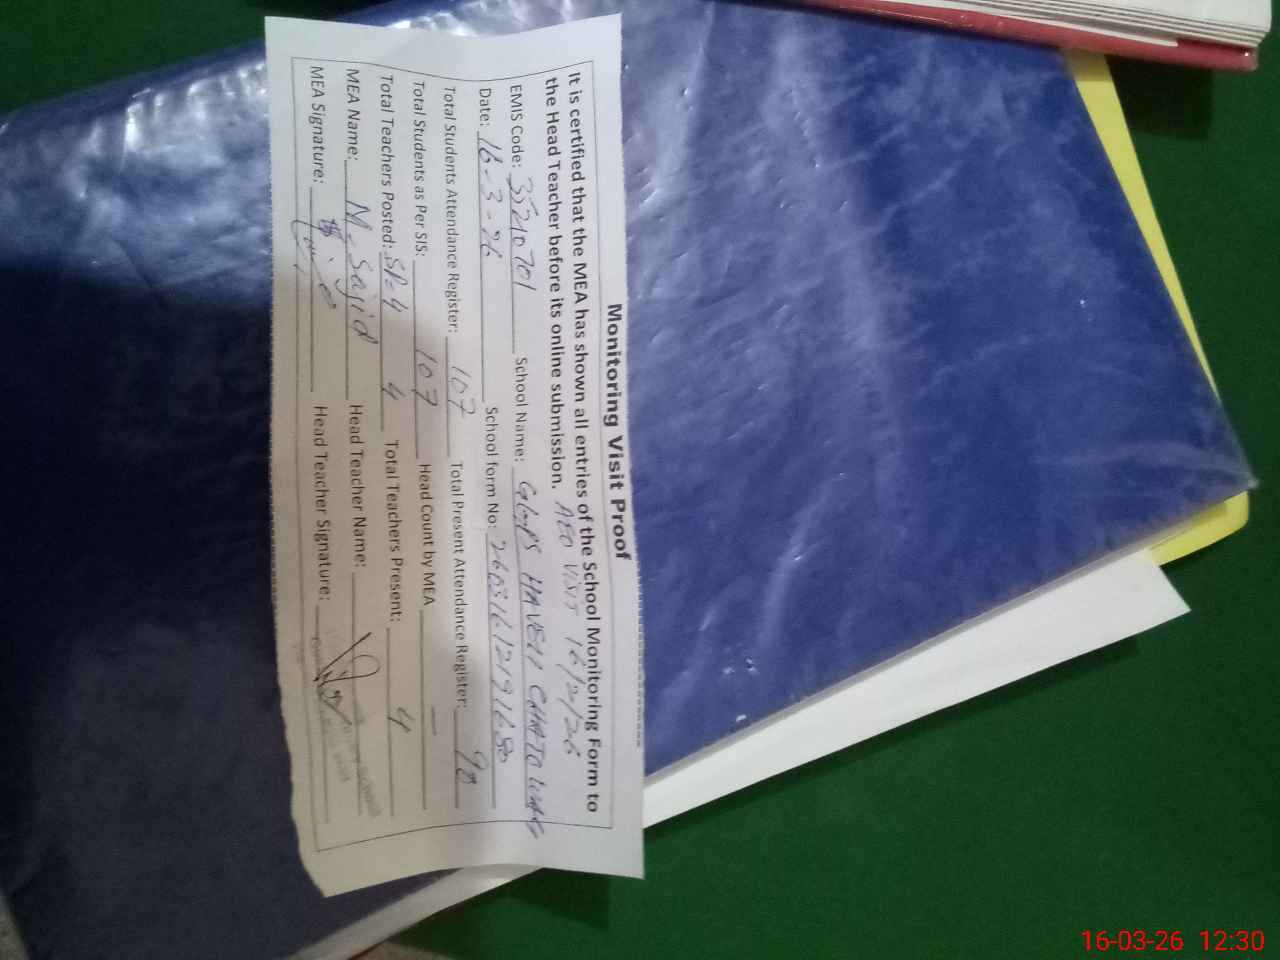 Monitoring Visit Proof
It is certified that the MEA has shown all entries of the School Monitoring Form to
the Head Teacher before its online submission. AEO VISIT 16/2/26
EMIS Code: 35210701 School Name: GGPS HAVELI CHATA
Date: 16-3-26 School form No:
Total Students Attendance Register: 107 Total Present Attendance Register: 90
Total Students as Per SIS: 107 Head Count by MEA —
Total Teachers Posted: 4 Total Teachers Present: 4
MEA Name: M. Sajid Head Teacher Name:
MEA Signature: Head Teacher Signature:
16-03-26 12:30